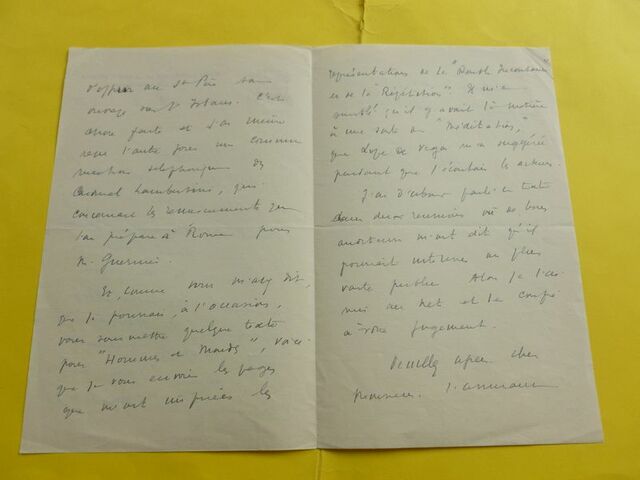 d'offrir au St Père son
ouvrage sur l'Islam. C'est
chose faite et j'ai même
reçu l'autre jour une commu
nication téléphonique du
Cardinal
concernant les remerciements que
j'ai préparé à Rome pour
M. Guerrini.
Et, comme vous m'avez dit,
que je pourrais, à l'occasion,
vous soumettre quelque texte
pour "Hommes et Mondes", voici
que je vous envoie les pages
que m'ont inspirées les
représentations de la "Double Inconstance
et de la Répétition". Il m'a
semblé qu'il y avait là matière
à une sorte de "Méditation,"
que Lope de Vega m'a suggérée
pendant que j'écoutais les acteurs.
J'ai d'abord parlé ce texte
dans deux réunions où de bons
auditeurs m'ont dit qu'il
pourrait intéresser un plus
vaste public. Alors je l'ai
mis au net et le confie
à votre jugement.
Veuillez agréer cher
Monsieur, l'assurance